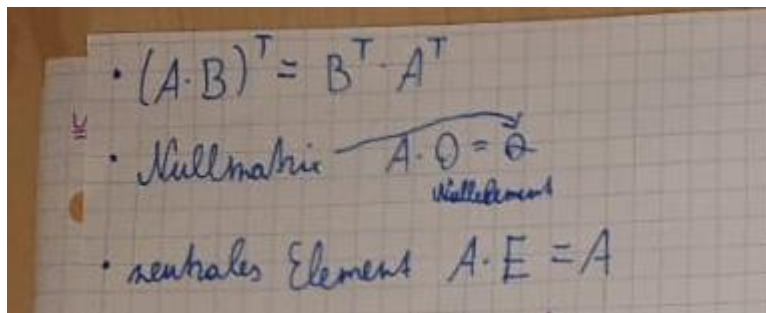 • (A·B)ᵀ = Bᵀ·Aᵀ
• Nullmatrix A·O = O
Nullelement
• neutrales Element A·E = A